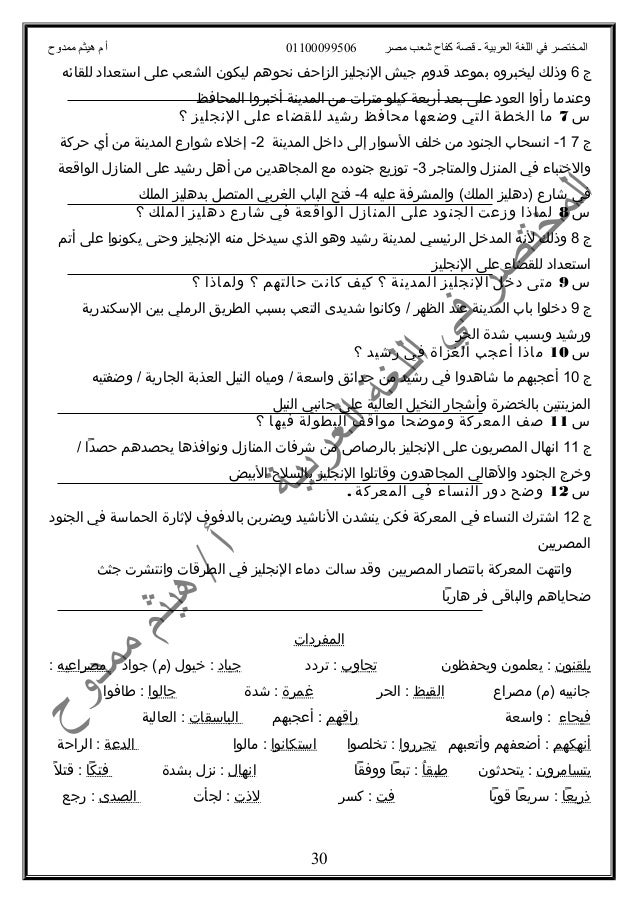 المختصر في اللغة العربية ـ قصة كفاح شعب مصر 01100099506 أ م هيثم ممدوح
ج 6 وذلك ليخبروه بموعد قدوم جيش الإنجليز الزاحف نحوهم ليكون الشعب على استعداد للقائه
وعندما رأوا العود على بعد أربعة كيلو مترات من المدينة أخبروا المحافظ
س 7 ما الخطة التي وضعها محافظ رشيد للقضاء على الإنجليز ؟
ج 7 1- انسحاب الجنود من خلف الأسوار إلى داخل المدينة 2- إخلاء شوارع المدينة من أي حركة
والاختباء في المنزل والمتاجر 3- توزيع جنوده مع المجاهدين من أهل رشيد على المنازل الواقعة
في شارع (دهليز الملك) والمشرفة عليه 4- فتح الباب الغربي المتصل بدهليز الملك
س 8 لماذا وزعت الجنود على المنازل الواقعة في شارع دهليز الملك ؟
ج 8 وذلك لأنه المدخل الرئيسي لمدينة رشيد وهو الذي سيدخل منه الإنجليز وحتى يكونوا على أتم
استعداد للقضاء على الإنجليز
س 9 متى دخل الإنجليز المدينة ؟ كيف كانت حالتهم ؟ ولماذا ؟
ج 9 دخلوا باب المدينة عند الظهر / وكانوا شديدى التعب بسبب الطريق الرملي بين الإسكندرية
ورشيد وبسبب شدة الحر
س 10 ماذا أعجب الغزاة في رشيد ؟
ج 10 أعجبهم ما شاهدوا في رشيد من حدائق واسعة / ومياه النيل العذبة الجارية / وضفتيه
المزينتين بالخضرة وأشجار النخيل العالية على جانبي النيل
س 11 صف المعركة وموضحا مواقف البطولة فيها ؟
ج 11 انهال المصريون على الإنجليز بالرصاص من شرفات المنازل ونوافذها يحصدهم حصدًا /
وخرج الجنود والأهالي المجاهدون وقاتلوا الإنجليز بالسلاح الأبيض
س 12 وضح دور النساء في المعركة .
ج 12 اشترك النساء في المعركة فكن ينشدن الأناشيد ويضربن بالدفوف لإثارة الحماسة في الجنود
المصريين
وانتهت المعركة بانتصار المصريين وقد سالت دماء الإنجليز في الطرقات وانتشرت جثث
ضحاياهم والباقى فر هاربًا
المفردات
يلقنون : يعلمون ويحفظون تجاوب : تردد جياد : خيول (م) جواد مصراعيه :
جانبيه (م) مصراع القيظ : الحر غمرة : شدة جالوا : طافوا
فيحاء : واسعة راقهم : أعجبهم الباسقات : العالية
أنهكهم : أضعفهم وأتعبهم تحرروا : تخلصوا استكانوا : مالوا الدعة : الراحة
يتسامرون : يتحدثون طبقاً : تبعًا ووفقًا انهال : نزل بشدة فتكًا : قتلاً
ذريعًا : سريعًا قويًا فت : كسر لاذت : لجأت الصدى : رجع
المختصر في اللغة العربية
أ / هيثم ممدوح
30